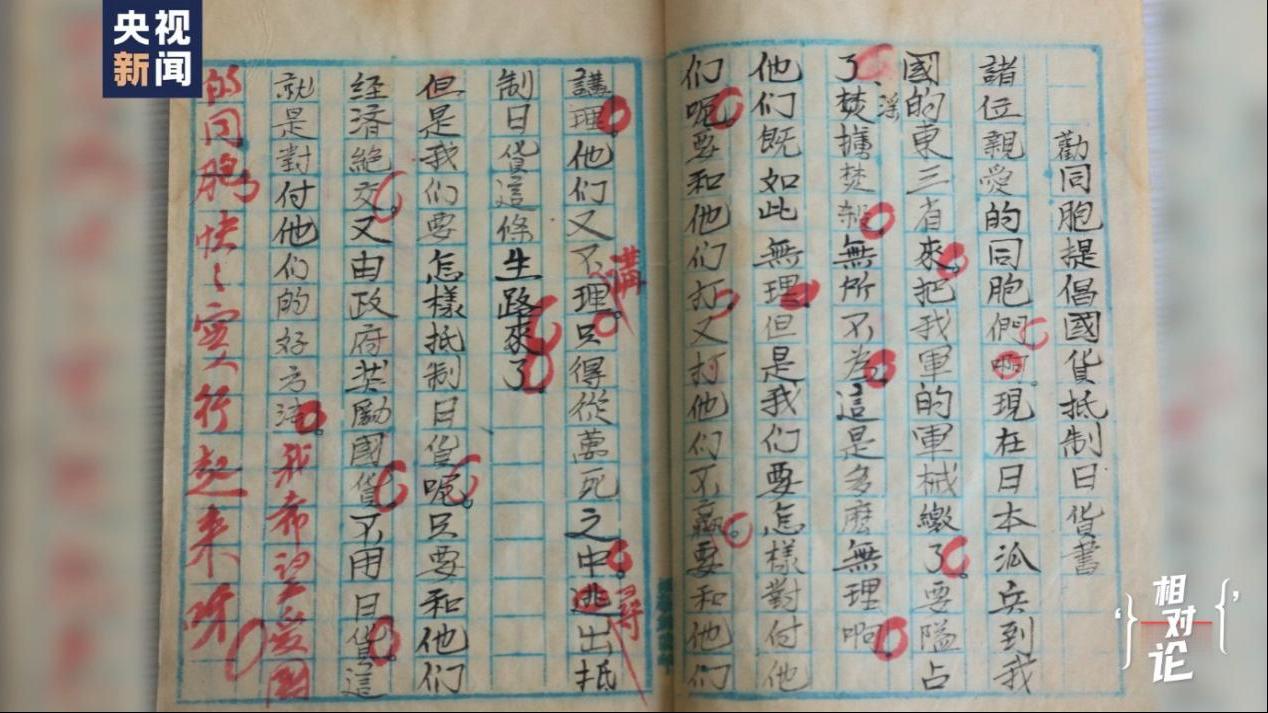 央视
新闻
勸同胞提倡國貨抵制日貨書
諸位親愛的同胞們啊。現在日本派兵到我
國的東三省來。把我軍的軍械繳了。要隘占
了、
淫
焚擄焚殺。無所不為。這是多麼無理啊。
他们既如此無理。但是我们要怎樣對付他
们呢。要和他们打。又打他们不贏。要和他们
講理。他们又不理。只得從萬死之中。逃出抵
講
尋
制日貨這條生路來了。
但是我们要怎樣抵制日貨呢。只要和他们
经濟絕交。又由政府奖勵國貨。不用日貨。這
就是對付他们的好方法。我希望爱國
的同胞、快〻实行起来呀
相对论